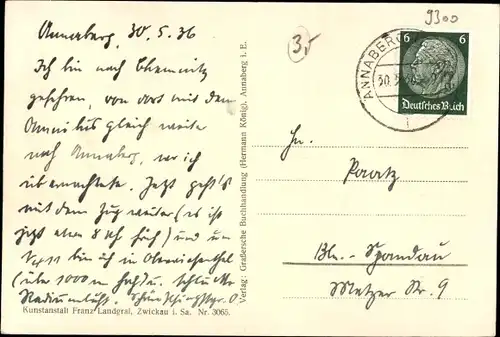 9300
Annaberg, 30.5.36
Ich bin nach Chemnitz
gefahren, von dort mit dem
Omnibus gleich weiter
nach Annaberg, wo ich
übernachtete. Jetzt geht's
mit dem Zug weiter (es ist
jetzt eben 8 Uhr früh) und um
bin ich in Oberwiesenthal
(über 1000 m hoch) u. schlucke
Radiumluft.
Kunstanstalt Franz Landgraf, Zwickau i. Sa. Nr. 3065.
Verlag: Graßersche Buchhandlung (Hermann König), Annaberg i. E.
3,-
ANNABERG
30.
6 6
Deutsches Reich
Hn.
Paatz
Bln.- Spandau
Metzer Str. 9